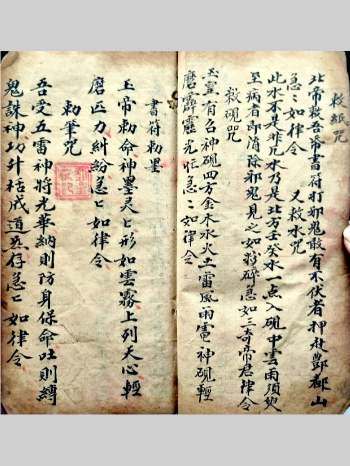 敕紙咒
北帝敕吾帝書符打邪鬼敢有不伏者押赴酆都山
急〻如律令　又敕水咒
此水不是非凡水乃是北方壬癸水一点入硯中雲雨須臾
至病者即消除邪鬼見之如粉碎急如三奇帝君律令
敕硯咒
玉皇有召神硯四方金木水火土雷風雨電神硯輕
磨霹靂光恒急〻如律令
書符敕墨
玉帝勅命神墨灵〻形如雲霧上列天心輕
磨匹力糾紛急〻如律令
勅筆咒
吾受五雷神將光華納則防身保命吐則縛
鬼誅神功升枯成道炁存急〻如律令